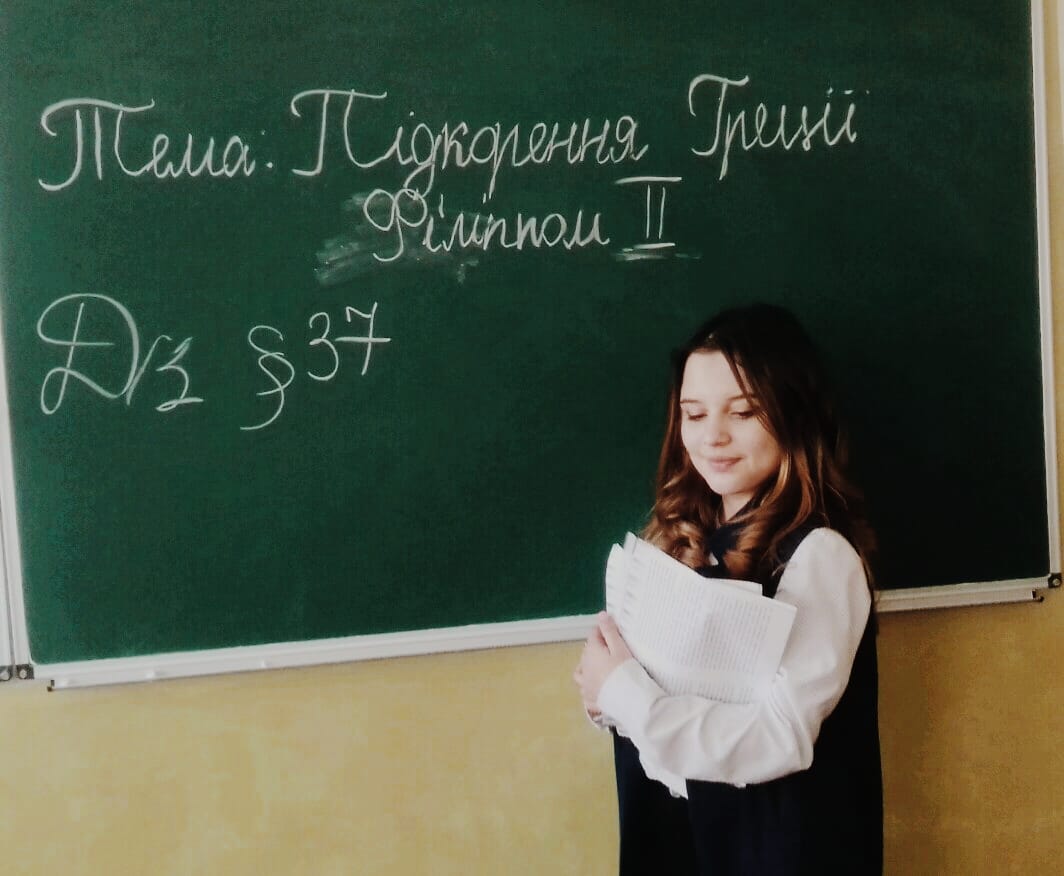 Тема: Підкорення Греції
Філіппом II
Д/з §37